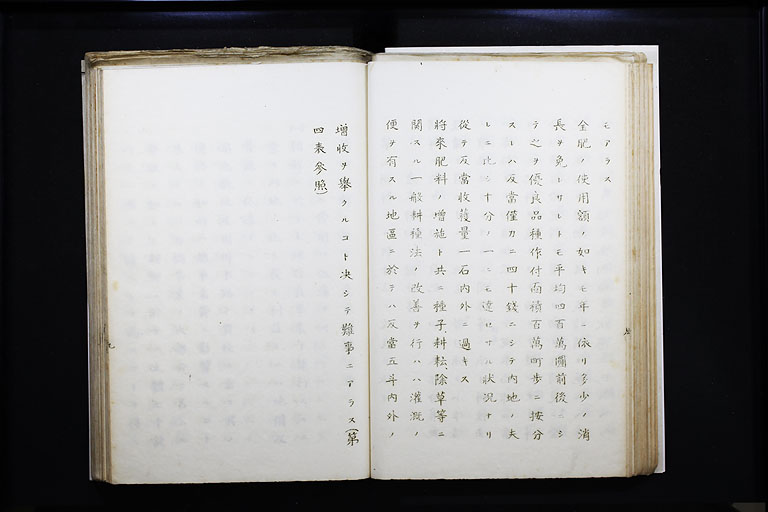 モアラス
金肥ノ使用額ノ如キモ年ニ依リ多少ノ消
長ヲ免レサレトモ平均四百萬圓前後ニシ
テ之ヲ優良品種作付面積百萬町歩ニ按分
スレハ反當僅カニ四十錢ニシテ内地ノ夫
レニ比シ十分ノ一ニモ達セサル狀況ナリ
從テ反當收穫量一石内外ニ過キス
將來肥料ノ増施ト共ニ種子、耕耘、除草等ニ
關スル一般耕種法ノ改善ヲ行ハハ灌漑ノ
便ヲ有スル地區ニ於テハ反當五斗内外ノ
增收ヲ擧クルコト决シテ難事ニアラス(第
四表參照)